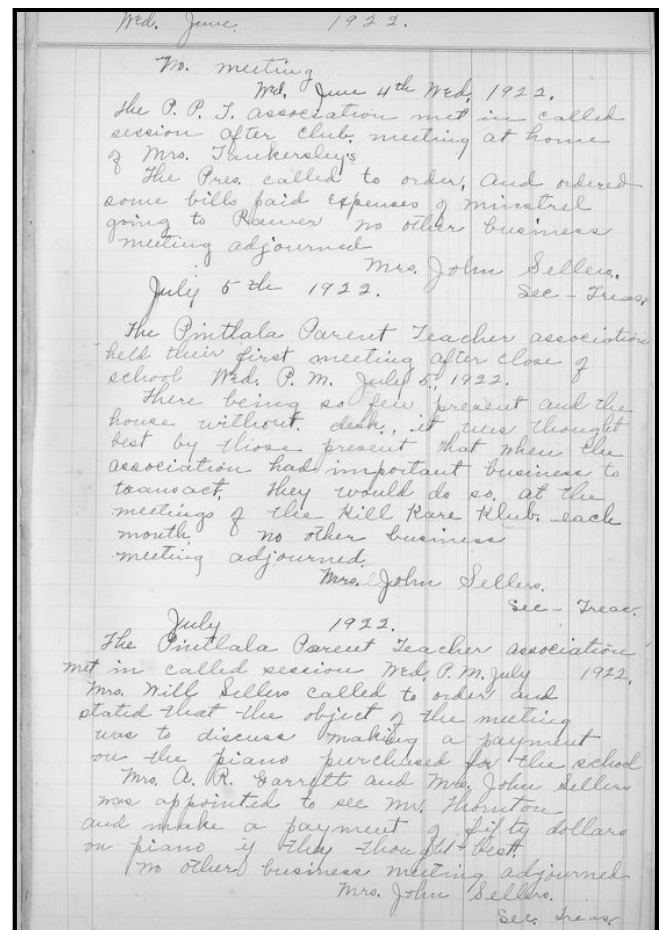 Wed. June. 1922.
No. meeting
Wed. June 4th Wed, 1922.
The P. P. T. association met in called
session after club. meeting at home
of Mrs. Tankersley's
The Pres. called to order, and ordered
some bills paid expenses of minstrel
going to Ramer no other business
meeting adjourned
Mrs. John Sellers.
July 5th 1922. Sec - Treas.
The Pintlala Parent Teacher association
held their first meeting after close of
school Wed. P. M. July 5, 1922.
There being so few present and the
house without. desk., it was thought
best by those present that when the
association had important business to
transact, they would do so. at the
meetings of the Kill Kare Klub. each
month. no other business
meeting adjourned.
Mrs. John Sellers.
Sec - Treas.
July 1922.
The Pintlala Parent Teacher association
met in called session Wed. P. M. July 1922.
Mrs. Will Sellers called to order and
stated that the object of the meeting
was to discuss making a payment
on the piano purchased for the school
Mrs. A. R. Garrett and Mrs. John Sellers
was appointed to see Mr. Thornton
and make a payment of fifty dollars
on piano if they thought best.
no other business meeting adjourned
Mrs. John Sellers.
Sec. Treas.